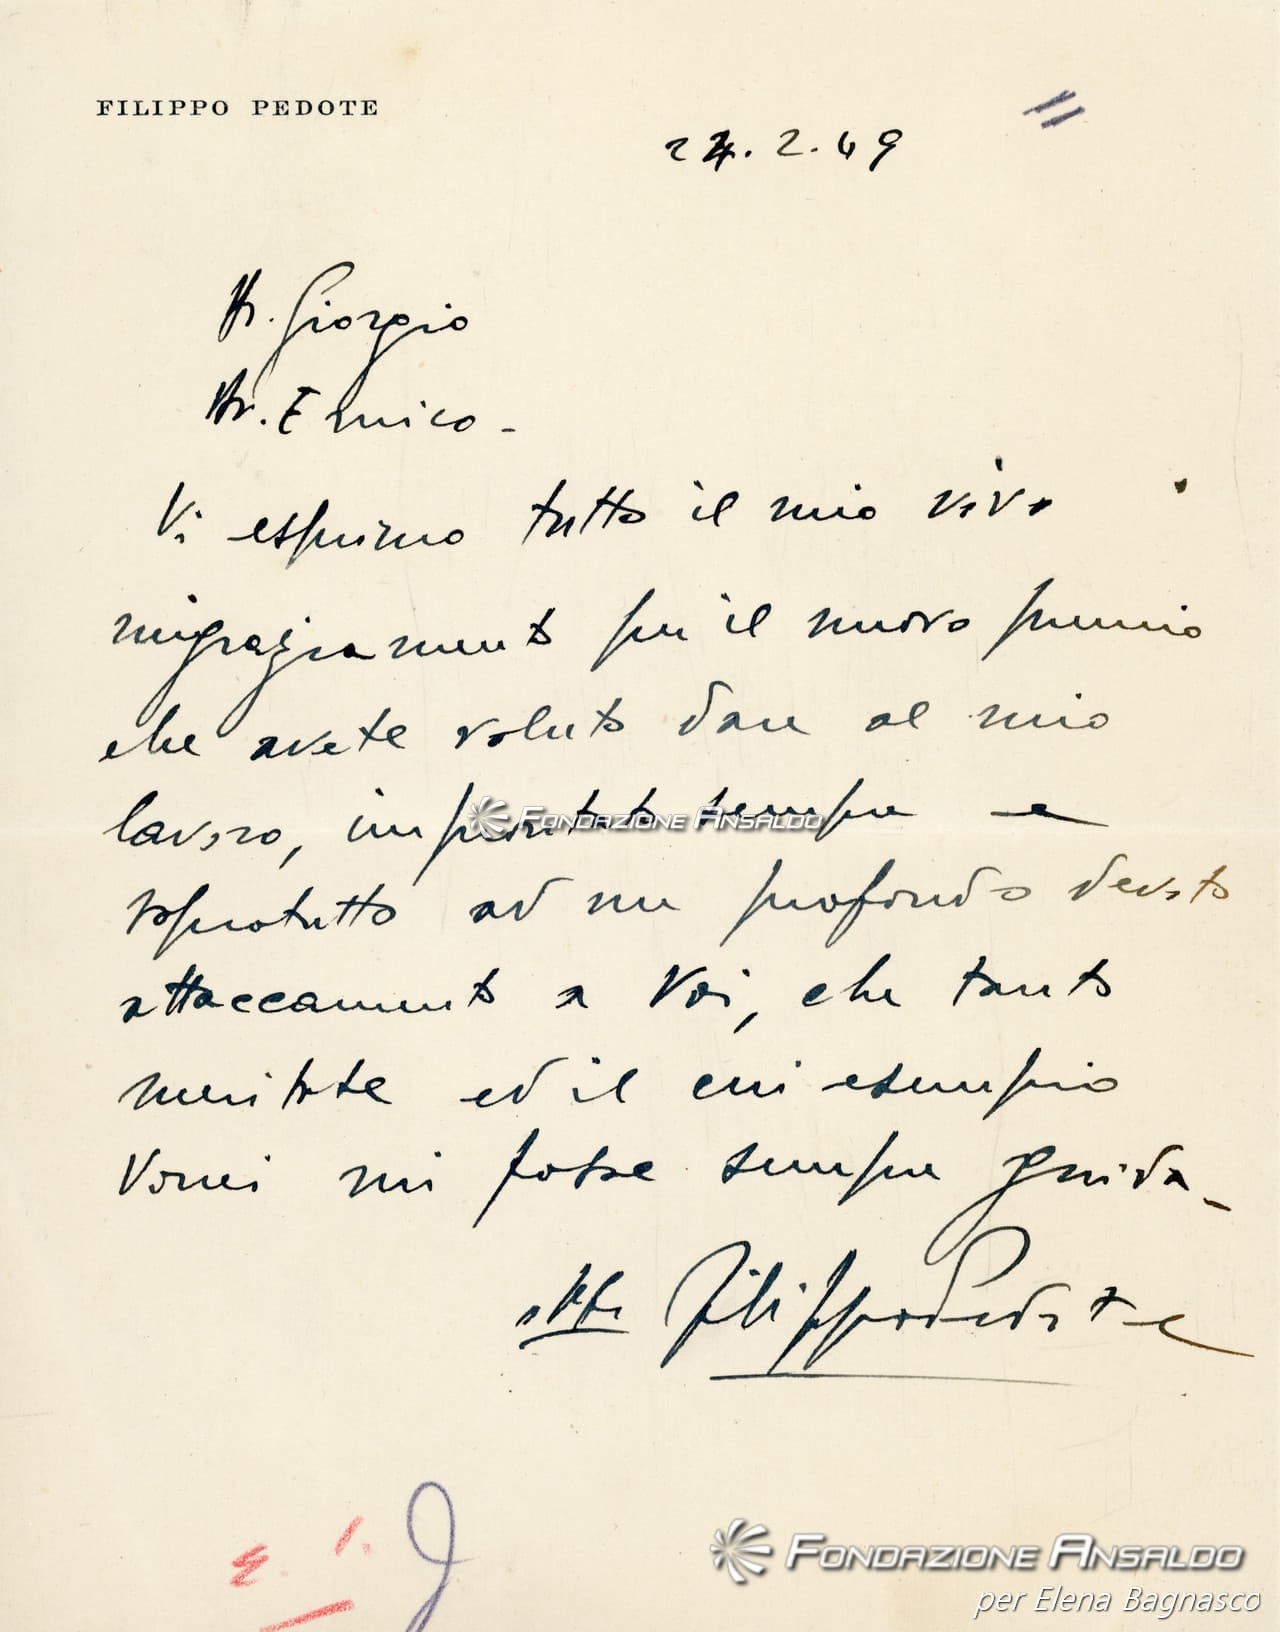 FILIPPO PEDOTE
24.2.49
Dr. Giorgio
Dr. Enrico -
Vi esprimo tutto il mio vivo
ringraziamento per il nuovo premio
che avete voluto dare al mio
lavoro, improntato sempre e
soprotutto ad un profondo devoto
attaccamento a Voi, che tanto
meritate ed il cui esempio
vorrei mi fosse sempre guida -
Filippo Pedote
FONDAZIONE ANSALDO
FONDAZIONE ANSALDO
per Elena Bagnasco